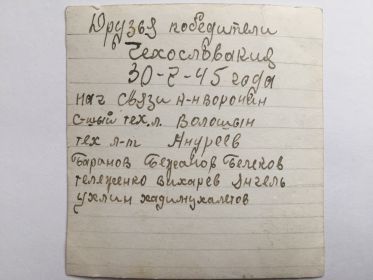 Друзья победители
Чехословакия
30-7-45 года
нач связи к-н Воронин
с-шый тех.л. Волошын
тех л-т Андреев
Баранов Бежанов Беляков
Теляженко Вихарев Ангель
Ухлин